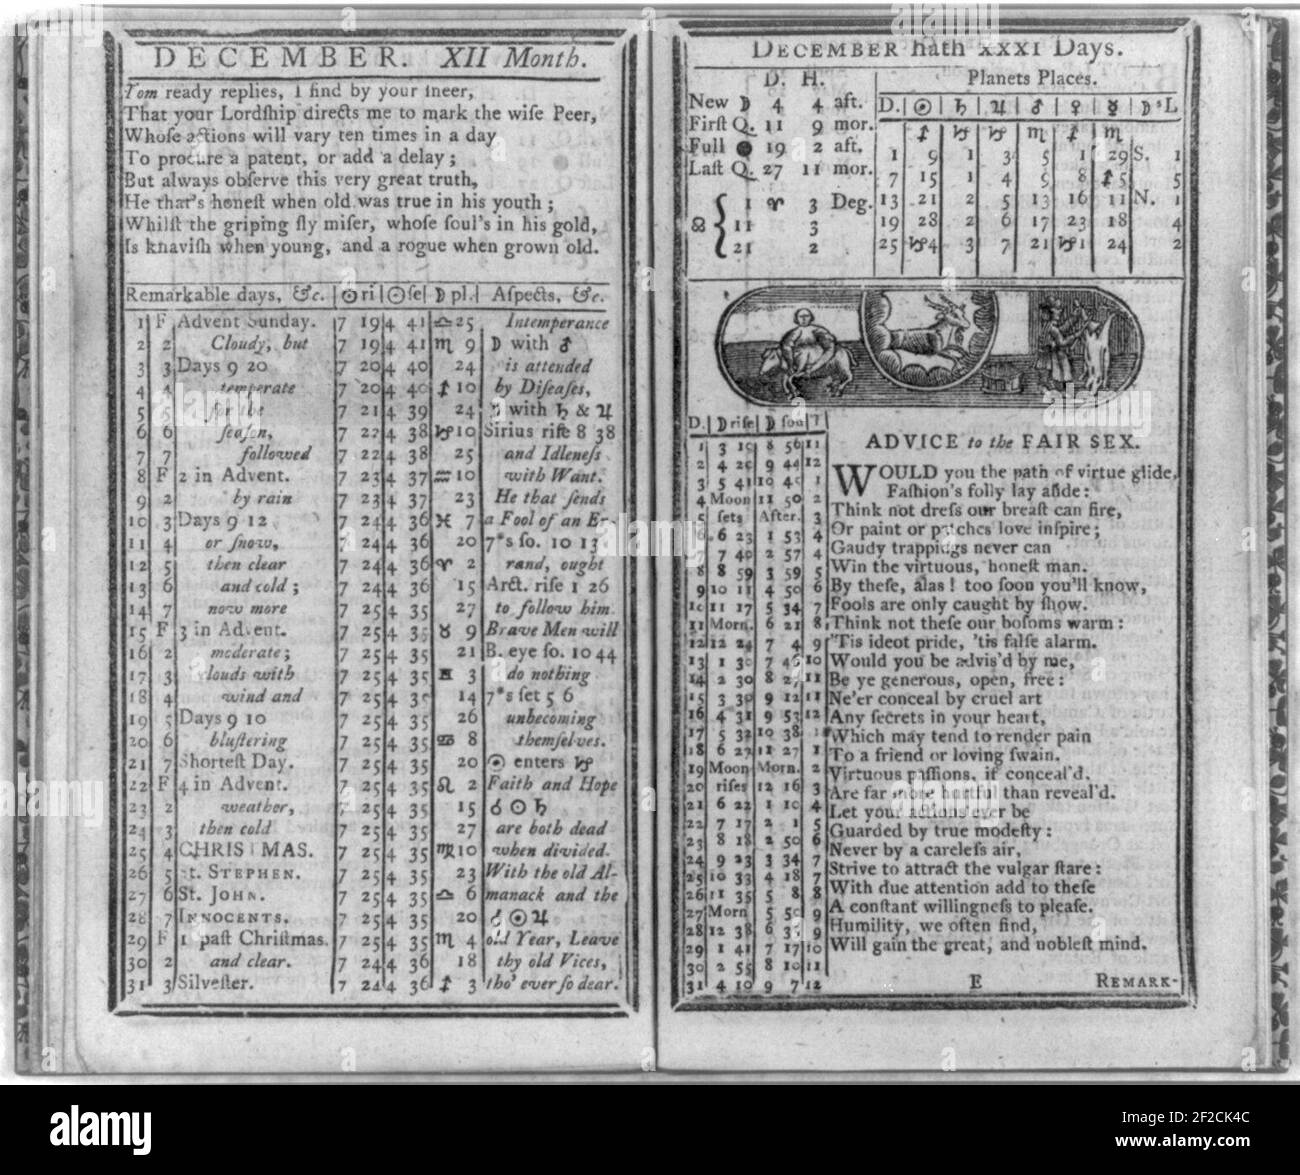 DECEMBER. XII Month.
Tom ready replies, I find by your ſneer,
That your Lordſhip directs me to mark the wiſe Peer,
Whoſe actions will vary ten times in a day
To procure a patent, or add a delay;
But always obſerve this very great truth,
He that's honeſt when old was true in his youth;
Whilſt the griping ſly miſer, whoſe ſoul's in his gold,
Is knaviſh when young, and a rogue when grown old.
Remarkable days, &c. | ☉ri | ☉ſe | ☽ pl. | Aſpects, &c.
1 F Advent Sunday. 7 19 4 41 ♎ 25 Intemperance
2 2 Cloudy, but 7 19 4 41 ♏ 9 ☽ with ♂
3 3 Days 9 20 7 20 4 40 24 is attended
4 4 temperate 7 20 4 40 ♐ 10 by Diſeaſes,
5 5 for the 7 21 4 39 24 ☽ with ♄ & ♃
6 6 ſeaſon, 7 22 4 38 ♑ 10 Sirius riſe 8 38
7 7 followed 7 22 4 38 25 and Idleneſs
8 F 2 in Advent. 7 23 4 37 ♒ 10 with Want.
9 2 by rain 7 23 4 37 23 He that ſends
10 3 Days 9 12 7 24 4 36 ♓ 7 a Fool of an Er-
11 4 or ſnow, 7 24 4 36 20 7*s ſo. 10 13
12 5 then clear 7 24 4 36 ♈ 2 rand, ought
13 6 and cold; 7 24 4 36 15 Arct. riſe 1 26
14 7 now more 7 25 4 35 27 to follow him.
15 F 3 in Advent. 7 25 4 35 ♉ 9 Brave Men will
16 2 moderate; 7 25 4 35 21 B. eye ſo. 10 44
17 3 clouds with 7 25 4 35 ♊ 3 do nothing
18 4 wind and 7 25 4 35 14 7*s ſet 5 6
19 5 Days 9 10 7 25 4 35 26 unbecoming
20 6 bluſtering 7 25 4 35 ♋ 8 themſelves.
21 7 Shorteſt Day. 7 25 4 35 20 ☉ enters ♑
22 F 4 in Advent. 7 25 4 35 ♌ 2 Faith and Hope
23 2 weather, 7 25 4 35 15 ☌ ☉ ♄
24 3 then cold 7 25 4 35 27 are both dead
25 4 CHRISTMAS. 7 25 4 35 ♍ 10 when divided.
26 5 St. STEPHEN. 7 25 4 35 23 With the old Al-
27 6 St. JOHN. 7 25 4 35 ♎ 6 manack and the
28 7 INNOCENTS. 7 25 4 35 20 ☌ ☉ ♃
29 F 1 paſt Chriſtmas. 7 25 4 35 ♏ 4 old Year, Leave
30 2 and clear. 7 24 4 36 18 thy old Vices,
31 3 Silveſter. 7 24 4 36 ♐ 3 tho' ever ſo dear.
DECEMBER hath XXXI Days.
D. H.
New ☽ 4 4 aft.
Firſt Q. 11 9 mor.
Full ● 19 2 aft.
Laſt Q. 27 11 mor.
☊ { 1 ♈ 3 Deg.
11 3
21 2
Planets Places.
D. | ☉ | ♄ | ♃ | ♂ | ♀ | ☿ | ☽'s L
♐ ♑ ♑ ♏ ♐ ♏
1 9 1 3 5 1 29 S. 1
7 15 1 4 9 8 ♐ 5 5
13 21 2 5 13 16 11 N. 1
19 28 2 6 17 23 18 4
25 ♑ 4 3 7 21 ♑ 1 24 2
D. | ☽ riſe | ☽ ſou | T
1 3 19 8 56 11
2 4 29 9 44 12
3 5 41 10 49 1
4 Moon 11 50 2
5 ſets After. 3
6 6 23 1 53 4
7 7 40 2 57 4
8 8 59 3 59 5
9 10 11 4 50 6
10 11 17 5 34 7
11 Morn. 6 21 8
12 12 24 7 4 9
13 1 30 7 46 10
14 2 30 8 27 11
15 3 30 9 12 11
16 4 31 9 53 12
17 5 32 10 38 1
18 6 27 11 27 1
19 Moon Morn. 2
20 riſes 12 16 3
21 6 22 1 10 4
22 7 17 2 1 5
23 8 18 2 50 6
24 9 23 3 34 7
25 10 33 4 18 7
26 11 35 5 8 8
27 Morn 5 50 9
28 12 38 6 33 9
29 1 41 7 17 10
30 2 55 8 10 11
31 4 10 9 7 12
ADVICE to the FAIR SEX.
WOULD you the path of virtue glide,
Faſhion's folly lay aſide:
Think not dreſs our breaſt can fire,
Or paint or patches love inſpire;
Gaudy trappings never can
Win the virtuous, honeſt man.
By theſe, alas! too ſoon you'll know,
Fools are only caught by ſhow.
Think not theſe our boſoms warm:
'Tis ideot pride, 'tis falſe alarm.
Would you be advis'd by me,
Be ye generous, open, free:
Ne'er conceal by cruel art
Any ſecrets in your heart,
Which may tend to render pain
To a friend or loving ſwain.
Virtuous paſſions, if conceal'd,
Are far more hurtful than reveal'd.
Let your actions ever be
Guarded by true modeſty:
Never by a careleſs air,
Strive to attract the vulgar ſtare:
With due attention add to theſe
A conſtant willingneſs to pleaſe.
Humility, we often find,
Will gain the great, and nobleſt mind.
E REMARK-
alamy
Image ID: 2F2CK4C
www.alamy.com